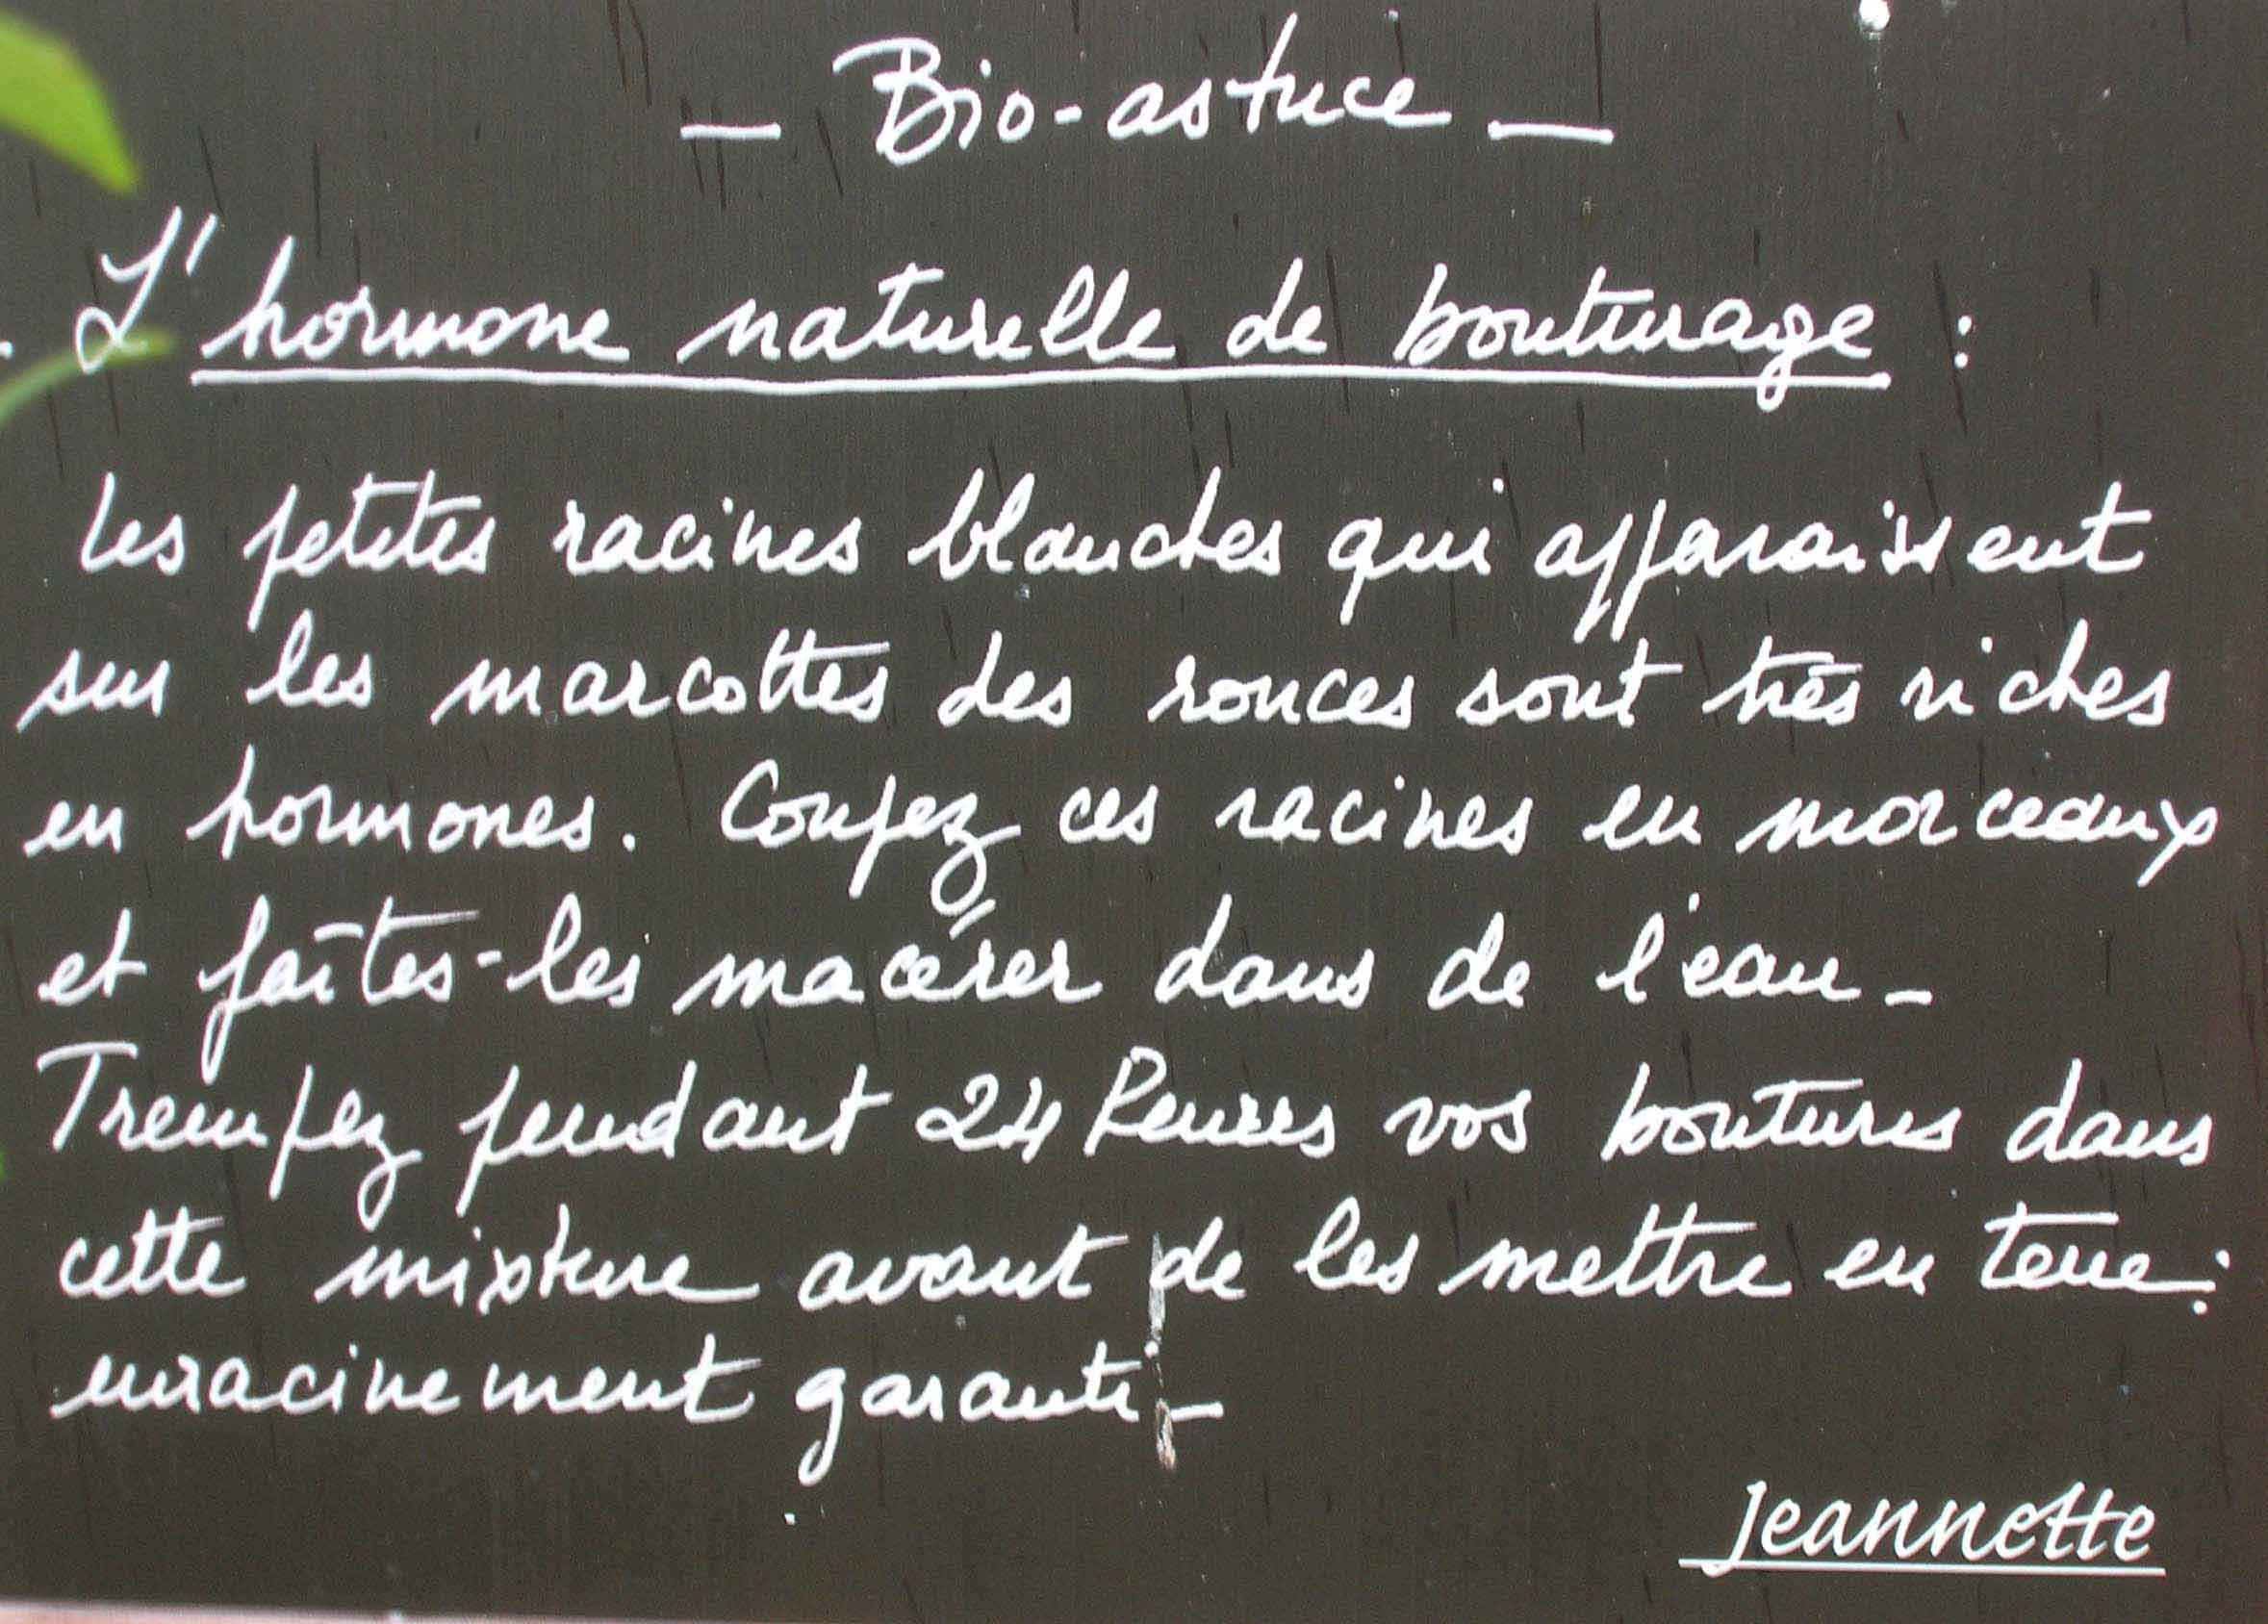 - Bio-astuce -
L'hormone naturelle de bouturage :
Les petites racines blanches qui apparaissent
sur les marcottes des ronces sont très riches
en hormones. Coupez ces racines en morceaux
et faîtes-les macérer dans de l'eau -
Trempez pendant 24 heures vos boutures dans
cette mixture avant de les mettre en terre :
enracinement garanti -
Jeannette